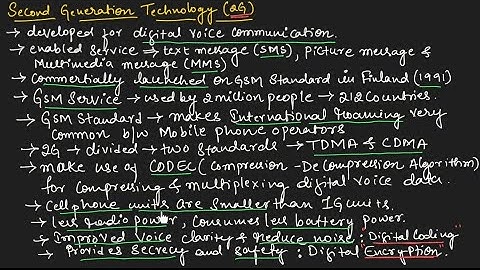 Second Generation Technology (2G)
→ developed for digital voice communication.
→ enabled service ⇒ text message (SMS), Picture message &
Multimedia message (MMS)
→ Commertially launched on GSM Standard in Finland (1991)
→ GSM Service → used by 2 million people → 212 Countries.
→ GSM Standard → makes International Roaming very
Common b/w Mobile phone operators
→ 2G → divided → two Standards → TDMA & CDMA
→ make use of CODEC (Compression - DeCompression Algorithm)
for Compressing & multiplexing digital voice data.
→ Cellphone units are smaller than 1G units.
→ less radio power, Consumes less battery power.
→ Improved Voice clarity & Reduce noise : Digital Coding
→ Provides Secrecy and Safety : Digital Encryption.